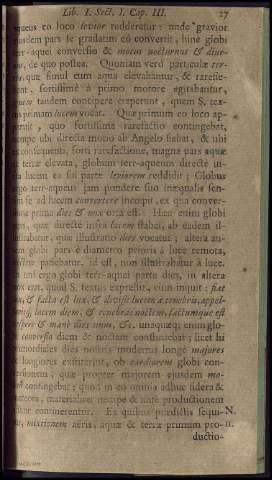 Lib. I. Sect. I. Cap. III. 27
aqueus eo loco levior redderetur: unde gravior
ejusdem pars se gradatim eò convertit, hinc globi
terr-aquei conversio & motus nocturnus & diur-
de quo postea. Quoniam verò particulæ ter-
quæ simul cum aqua elevabantur, & rarefie-
fortissimè à primo motore agitabantur,
tandem contipere cœperunt, quem S. tex-
primum lucem vocat. Quæ primum eo loco ap-
quo fortissima rarefactio contingebat,
nempe ubi directa motio ab Angelo fiebat, & ubi
consequenti, forti rarefactione, magna pars aquæ
terræ elevata, globum terr-aqueum directè in-
lucem ea sui parte leviorem reddidit; Globus
ergo terr-aqueus jam pondere suo inæqualis sen-
ad lucem convertere incœpit, ex qua conver-
prima dies & nox orta est. Hæc enim globi
quæ directè infra lucem stabat, ab eadem il-
lustrabatur, quæ illustratio dies vocatur; altera au-
globi pars è diametro priori à luce remota,
patiebatur, id est, non illustrabatur à luce.
ergo globi terr-aquei parte dies, in altera
quod S. textus exprestit, cum inquit: fiat
& facta est lux, & divisit lucem a tenebris, appel-
lucem diem, & tenebras noctem, factumque est
vespere & manè dies unus, &c. unaquæq; enim glo-
conversa diem & noctem constituebat; licet hi
diebus nostris modernis longè majores
longiores extiterint, ob tardiorem globi con-
versionem, quæ propter majorem ejusdem mo-
contingebat; quod in eo omnia adhuc sidera &
materialiter nempe & ante productionem
continerentur. Ex quibus prædictis sequi- N.
mixtionem aëris, aquæ & terræ primum pro- II.
ductio-